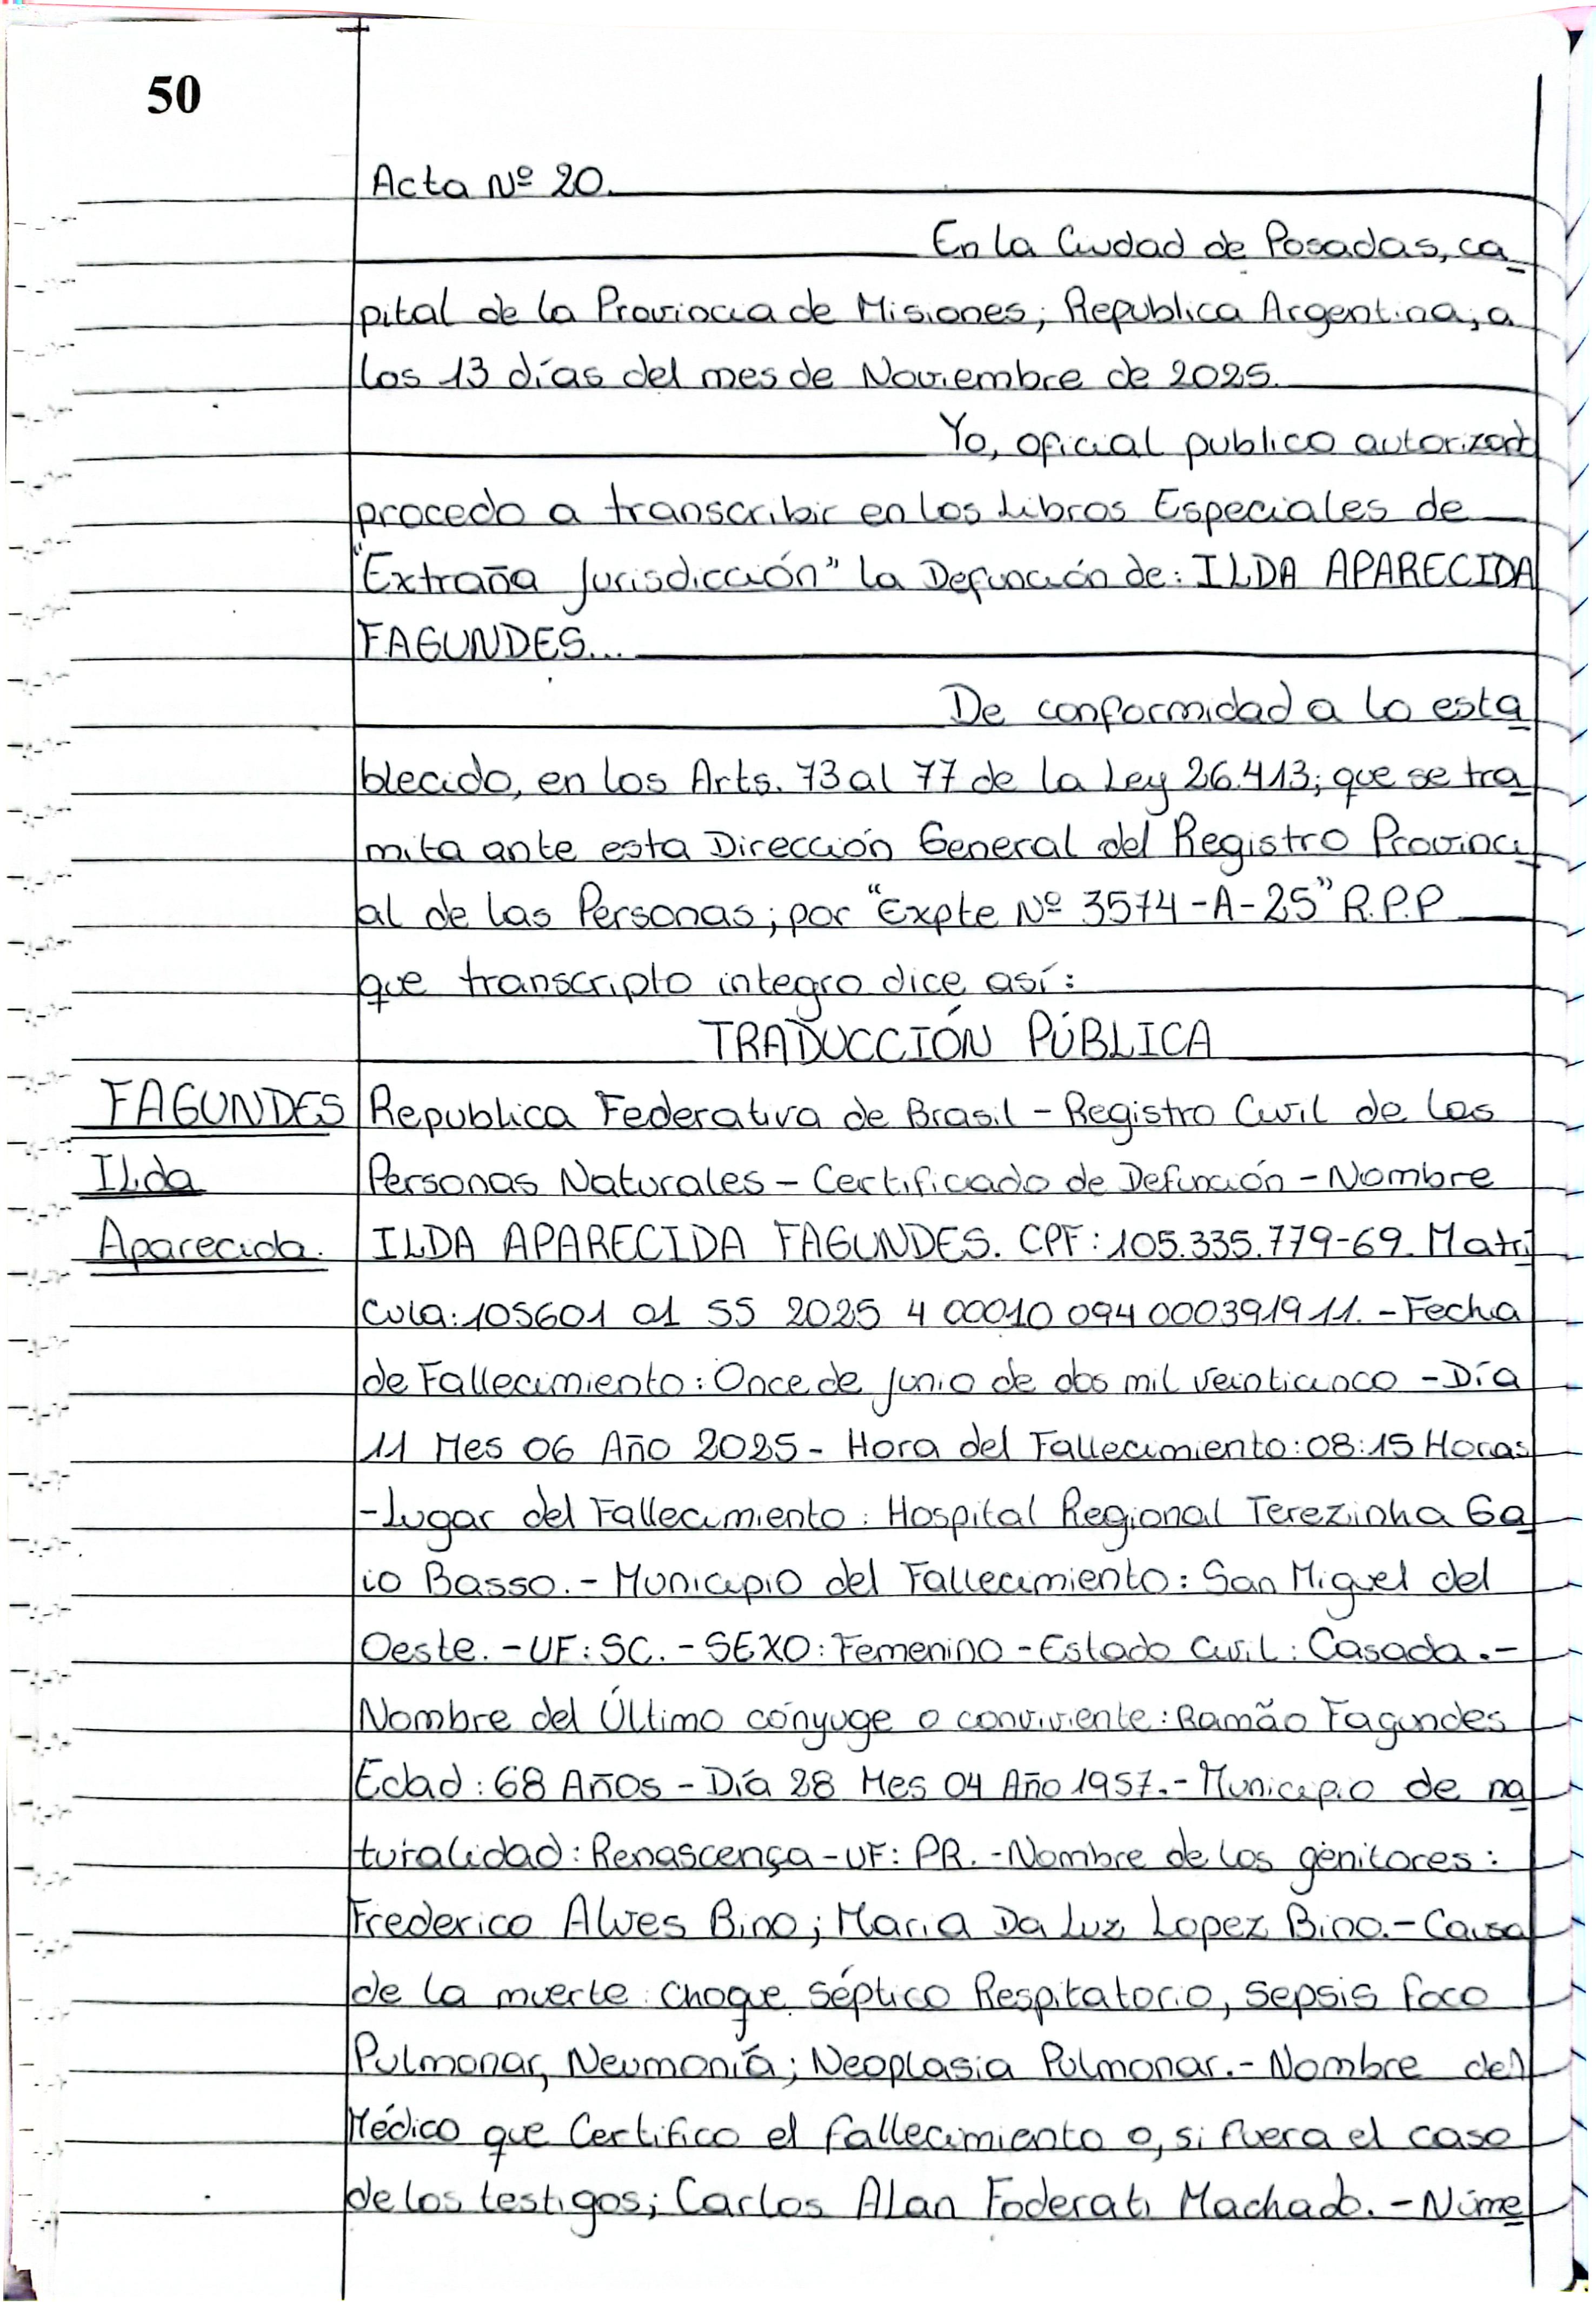 50
Acta Nº 20.
En la Ciudad de Posadas, ca
pital de la Provincia de Misiones; Republica Argentina; a
los 13 días del mes de Noviembre de 2025.
Yo, oficial publico autorizado
procedo a transcribir en los Libros Especiales de
"Extraña Jurisdicción" la Defunción de: ILDA APARECIDA
FAGUNDES...
De conformidad a lo esta
blecido, en los Arts. 73 al 77 de la Ley 26.413; que se tra
mita ante esta Dirección General del Registro Provinci
al de las Personas; por "Expte Nº 3574-A-25" R.P.P
que transcripto integro dice así:
TRADUCCIÓN PÚBLICA
FAGUNDES
Ilda
Aparecida.
Republica Federativa de Brasil - Registro Civil de las
Personas Naturales - Certificado de Defunción - Nombre
ILDA APARECIDA FAGUNDES. CPF: 105.335.779-69. Matrí
cula: 105601 01 55 2025 4 00010 094 0003919 11. - Fecha
de Fallecimiento: Once de junio de dos mil veinticinco - Día
11 Mes 06 Año 2025 - Hora del Fallecimiento: 08:15 Horas
- Lugar del Fallecimiento: Hospital Regional Terezinha Ga
io Basso. - Municipio del Fallecimiento: San Miguel del
Oeste. - UF: SC. - SEXO: Femenino - Estado Civil: Casada. -
Nombre del Último cónyuge o conviviente: Ramão Fagundes
Edad: 68 Años - Día 28 Mes 04 Año 1957. - Municipio de na
turalidad: Renascença - UF: PR. - Nombre de los génitores:
Frederico Alves Bino; Maria Da Luz Lopez Bino. - Causa
de la muerte: choque séptico Respitatorio, Sepsis foco
Pulmonar, Neumonía; Neoplasia Pulmonar. - Nombre del
Médico que Certifico el fallecimiento o, si fuera el caso
de los testigos; Carlos Alan Foderati Machado. - Núme